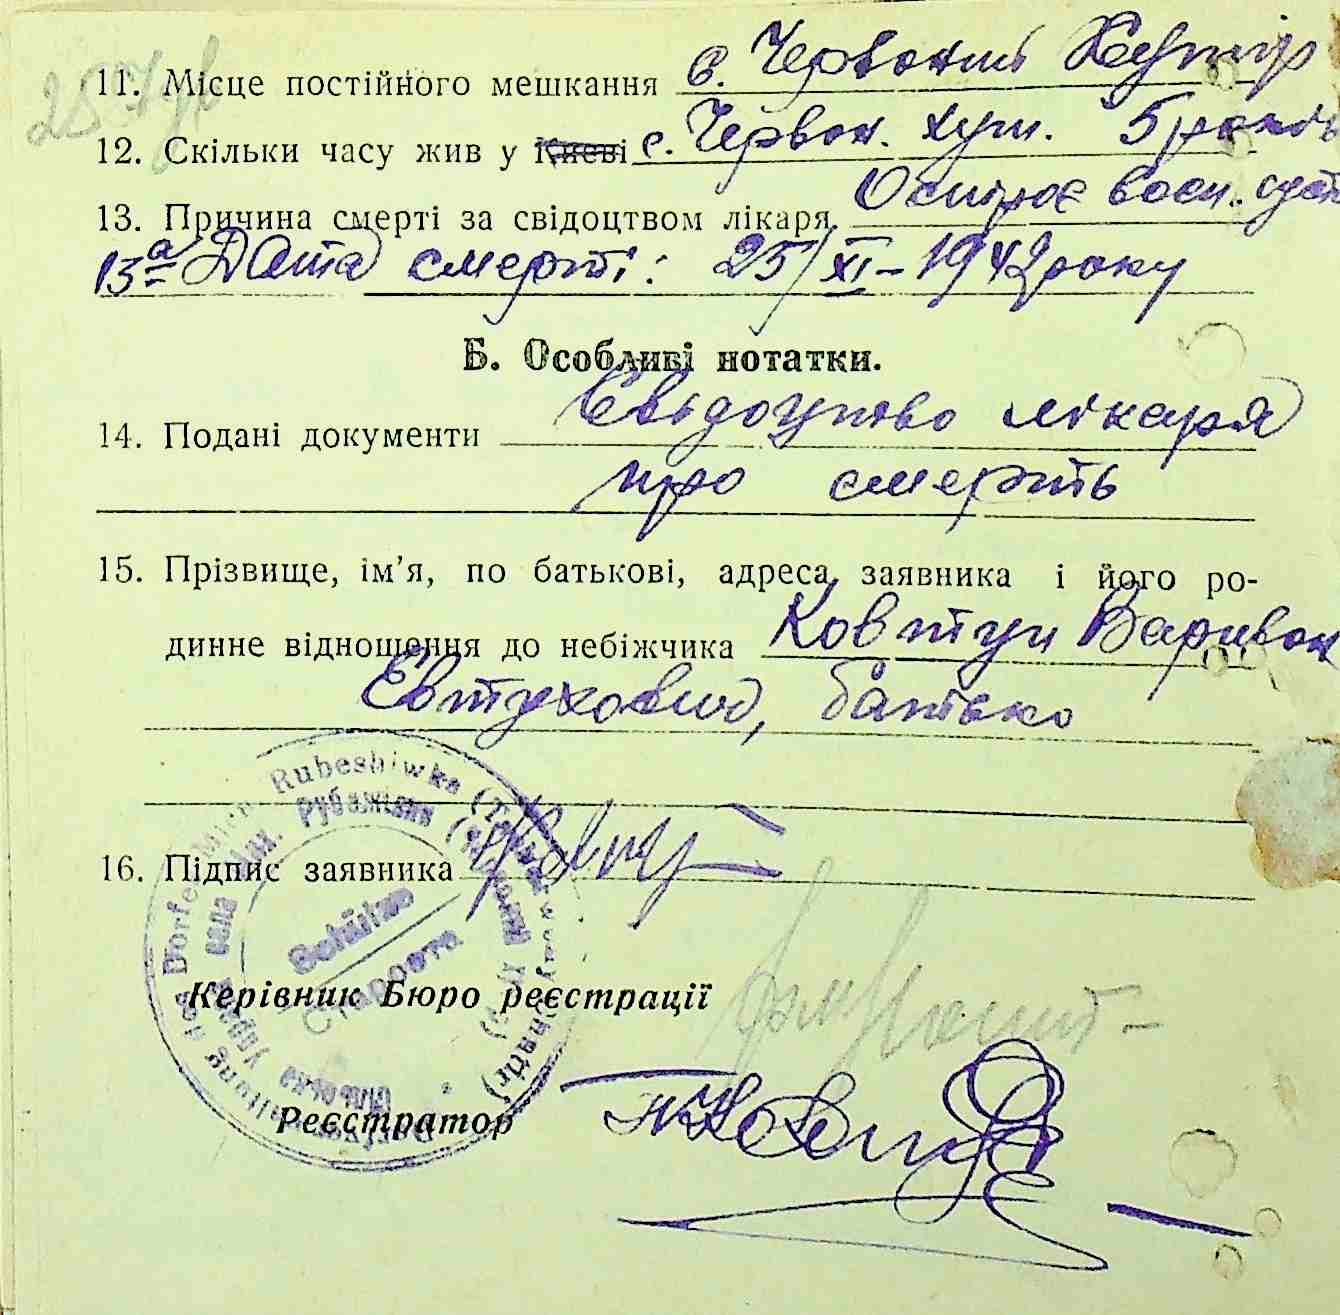 11. Місце постійного мешкання с. Червоний Хутір
12. Скільки часу жив у Києві с. Червон. хут. 5 років
13. Причина смерті за свідоцтвом лікаря Острое восп.
13а Дата смерті: 25/XI-1942 року
Б. Особливі нотатки.
14. Подані документи Свідоцтво лікаря
про смерть
15. Прізвище, ім'я, по батькові, адреса заявника і його ро-
динне відношення до небіжчика Ковтун Варивон
Евтухович, батько
16. Підпис заявника Ковту
Керівник Бюро реєстрації
Реєстратор
Rubeshiwka
Schultze
Староста